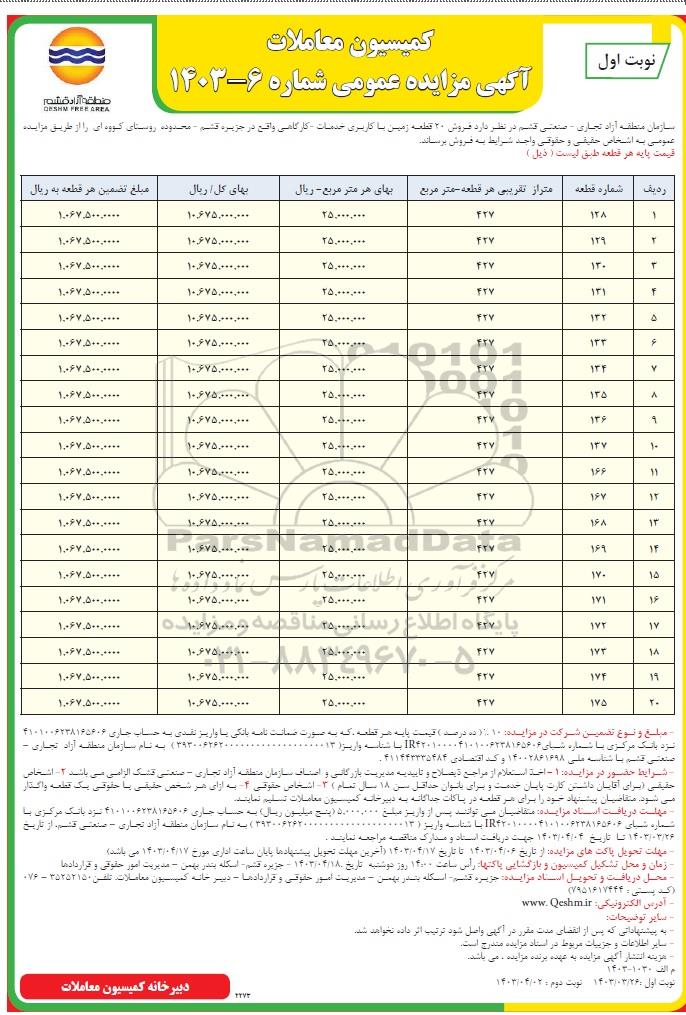 کمیسیون معاملات
آگهی مزایده عمومی شماره ۶-۱۴۰۳
نوبت اول
منطقه آزاد قشم
QESHM FREE AREA
سازمان منطقه آزاد تجاری - صنعتی قشم در نظر دارد فروش ۲۰ قطعه زمین با کاربری خدمات -کارگاهی واقع در جزیره قشم - محدوده روستای کووه ای را از طریق مزایده
عمومی به اشخاص حقیقی و حقوقی واجد شرایط به فروش برساند.
قیمت پایه هر قطعه طبق لیست ( ذیل )
ردیف شماره قطعه متراژ تقریبی هر قطعه-متر مربع بهای هر متر مربع- ریال بهای کل/ ریال مبلغ تضمین هر قطعه به ریال
۱ ۱۲۸ ۴۲۷ ۲۵.۰۰۰.۰۰۰ ۱۰.۶۷۵.۰۰۰.۰۰۰ ۱.۰۶۷.۵۰۰.۰۰۰۰
۲ ۱۲۹ ۴۲۷ ۲۵.۰۰۰.۰۰۰ ۱۰.۶۷۵.۰۰۰.۰۰۰ ۱.۰۶۷.۵۰۰.۰۰۰۰
۳ ۱۳۰ ۴۲۷ ۲۵.۰۰۰.۰۰۰ ۱۰.۶۷۵.۰۰۰.۰۰۰ ۱.۰۶۷.۵۰۰.۰۰۰۰
۴ ۱۳۱ ۴۲۷ ۲۵.۰۰۰.۰۰۰ ۱۰.۶۷۵.۰۰۰.۰۰۰ ۱.۰۶۷.۵۰۰.۰۰۰۰
۵ ۱۳۲ ۴۲۷ ۲۵.۰۰۰.۰۰۰ ۱۰.۶۷۵.۰۰۰.۰۰۰ ۱.۰۶۷.۵۰۰.۰۰۰۰
۶ ۱۳۳ ۴۲۷ ۲۵.۰۰۰.۰۰۰ ۱۰.۶۷۵.۰۰۰.۰۰۰ ۱.۰۶۷.۵۰۰.۰۰۰۰
۷ ۱۳۴ ۴۲۷ ۲۵.۰۰۰.۰۰۰ ۱۰.۶۷۵.۰۰۰.۰۰۰ ۱.۰۶۷.۵۰۰.۰۰۰۰
۸ ۱۳۵ ۴۲۷ ۲۵.۰۰۰.۰۰۰ ۱۰.۶۷۵.۰۰۰.۰۰۰ ۱.۰۶۷.۵۰۰.۰۰۰۰
۹ ۱۳۶ ۴۲۷ ۲۵.۰۰۰.۰۰۰ ۱۰.۶۷۵.۰۰۰.۰۰۰ ۱.۰۶۷.۵۰۰.۰۰۰۰
۱۰ ۱۳۷ ۴۲۷ ۲۵.۰۰۰.۰۰۰ ۱۰.۶۷۵.۰۰۰.۰۰۰ ۱.۰۶۷.۵۰۰.۰۰۰۰
۱۱ ۱۶۶ ۴۲۷ ۲۵.۰۰۰.۰۰۰ ۱۰.۶۷۵.۰۰۰.۰۰۰ ۱.۰۶۷.۵۰۰.۰۰۰۰
۱۲ ۱۶۷ ۴۲۷ ۲۵.۰۰۰.۰۰۰ ۱۰.۶۷۵.۰۰۰.۰۰۰ ۱.۰۶۷.۵۰۰.۰۰۰۰
۱۳ ۱۶۸ ۴۲۷ ۲۵.۰۰۰.۰۰۰ ۱۰.۶۷۵.۰۰۰.۰۰۰ ۱.۰۶۷.۵۰۰.۰۰۰۰
۱۴ ۱۶۹ ۴۲۷ ۲۵.۰۰۰.۰۰۰ ۱۰.۶۷۵.۰۰۰.۰۰۰ ۱.۰۶۷.۵۰۰.۰۰۰۰
۱۵ ۱۷۰ ۴۲۷ ۲۵.۰۰۰.۰۰۰ ۱۰.۶۷۵.۰۰۰.۰۰۰ ۱.۰۶۷.۵۰۰.۰۰۰۰
۱۶ ۱۷۱ ۴۲۷ ۲۵.۰۰۰.۰۰۰ ۱۰.۶۷۵.۰۰۰.۰۰۰ ۱.۰۶۷.۵۰۰.۰۰۰۰
۱۷ ۱۷۲ ۴۲۷ ۲۵.۰۰۰.۰۰۰ ۱۰.۶۷۵.۰۰۰.۰۰۰ ۱.۰۶۷.۵۰۰.۰۰۰۰
۱۸ ۱۷۳ ۴۲۷ ۲۵.۰۰۰.۰۰۰ ۱۰.۶۷۵.۰۰۰.۰۰۰ ۱.۰۶۷.۵۰۰.۰۰۰۰
۱۹ ۱۷۴ ۴۲۷ ۲۵.۰۰۰.۰۰۰ ۱۰.۶۷۵.۰۰۰.۰۰۰ ۱.۰۶۷.۵۰۰.۰۰۰۰
۲۰ ۱۷۵ ۴۲۷ ۲۵.۰۰۰.۰۰۰ ۱۰.۶۷۵.۰۰۰.۰۰۰ ۱.۰۶۷.۵۰۰.۰۰۰۰
ParsNamadData
مرکز فرآوری اطلاعات پارس نماد داده ها
پایگاه اطلاع رسانی مناقصه و مزایده
۰۲۱-۸۸۳۴۹۶۷۰-۵
- مبلغ و نوع تضمین شرکت در مزایده: ۱۰ ٪ ( ده درصد ) قیمت پایه هر قطعه .که به صورت ضمانت نامه بانکی یا واریز نقدی به حساب جاری ۴۱۰۱۰۰۶۲۳۸۱۶۵۶۰۶
نزد بانک مرکزی با شماره شبای IR۴۲۰۱۰۰۰۰۴۱۰۱۰۰۶۲۳۸۱۶۵۶۰۶ با شناسه واریز( ) به نام سازمان منطقه آزاد تجاری -
صنعتی قشم با شناسه ملی ۱۴۰۰۲۸۶۱۶۹۸ و کد اقتصادی ۴۱۱۴۴۳۳۵۴۸۴
- شرایط حضور در مزایده: ۱- اخذ استعلام از مراجع ذیصلاح و تاییدیه مدیریت بازرگانی و اصناف سازمان منطقه آزاد تجاری - صنعتی قشک الزامی می باشد ۲- اشخاص
حقیقی (برای آقایان داشتن کارت پایان خدمت و برای بانوان حداقل سن ۱۸ سال تمام ) ۳- اشخاص حقوقی ۴- به ازای هر شخص حقیقی یا حقوقی یک قطعه واگذار
می شود. متقاضیان پیشنهاد خود را برای هر قطعه در پاکات جداگانه به دبیرخانه کمیسیون معاملات تسلیم نمایند.
- مهلت دریافت اسناد مزایده: متقاضیان می توانند پس از واریز مبلغ ۵.۰۰۰.۰۰۰ (پنج میلیون ریال) به حساب جاری ۴۱۰۱۰۰۶۲۳۸۱۶۵۶۰۶ نزد بانک مرکزی با
شماره شبای IR۴۲۰۱۰۰۰۰۴۱۰۱۰۰۶۲۳۸۱۶۵۶۰۶ با شناسه واریز ( ) به نام سازمان منطقه آزاد تجاری - صنعتی قشم، از تاریخ
۱۴۰۳/۰۳/۲۶ تا تاریخ ۱۴۰۳/۰۴/۰۴ جهت دریافت اسناد و مدارک مناقصه مراجعه نمایند .
- مهلت تحویل پاکت های مزایده: از تاریخ ۱۴۰۳/۰۴/۰۶ تا تاریخ ۱۴۰۳/۰۴/۱۷ (آخرین مهلت تحویل پیشنهادها پایان ساعت اداری مورخ ۱۴۰۳/۰۴/۱۷ می باشد)
- زمان و محل تشکیل کمیسیون و بازگشایی پاکتها: رأس ساعت ۱۴:۰۰ روز دوشنبه تاریخ ۱۴۰۳/۰۴/۱۸. - جزیره قشم- اسکله بندر بهمن – مدیریت امور حقوقی و قراردادها
- محل دریافت و تحویل اسناد مزایده: جزیره قشم- اسکله بندر بهمن – مدیریت امور حقوقی و قراردادها – دبیر خانه کمیسیون معاملات. تلفن ۳۵۲۵۲۱۵۰ - ۰۷۶
(کد پستی : ۷۹۵۱۶۱۷۴۴۴)
- آدرس الکترونیکی: www. Qeshm.ir
- سایر توضیحات:
- به پیشنهاداتی که پس از انقضای مدت مقرر در آگهی واصل شود ترتیب اثر داده نخواهد شد.
- سایر اطلاعات و جزییات مربوط در اسناد مزایده مندرج است.
- هزینه انتشار آگهی مزایده به عهده برنده مزایده ، می باشد.
م الف ۱۰۳۰-۱۴۰۳
نوبت اول :۱۴۰۳/۰۳/۲۶ نوبت دوم : ۱۴۰۳/۰۴/۰۲
دبیرخانه کمیسیون معاملات
۲۲۷۳